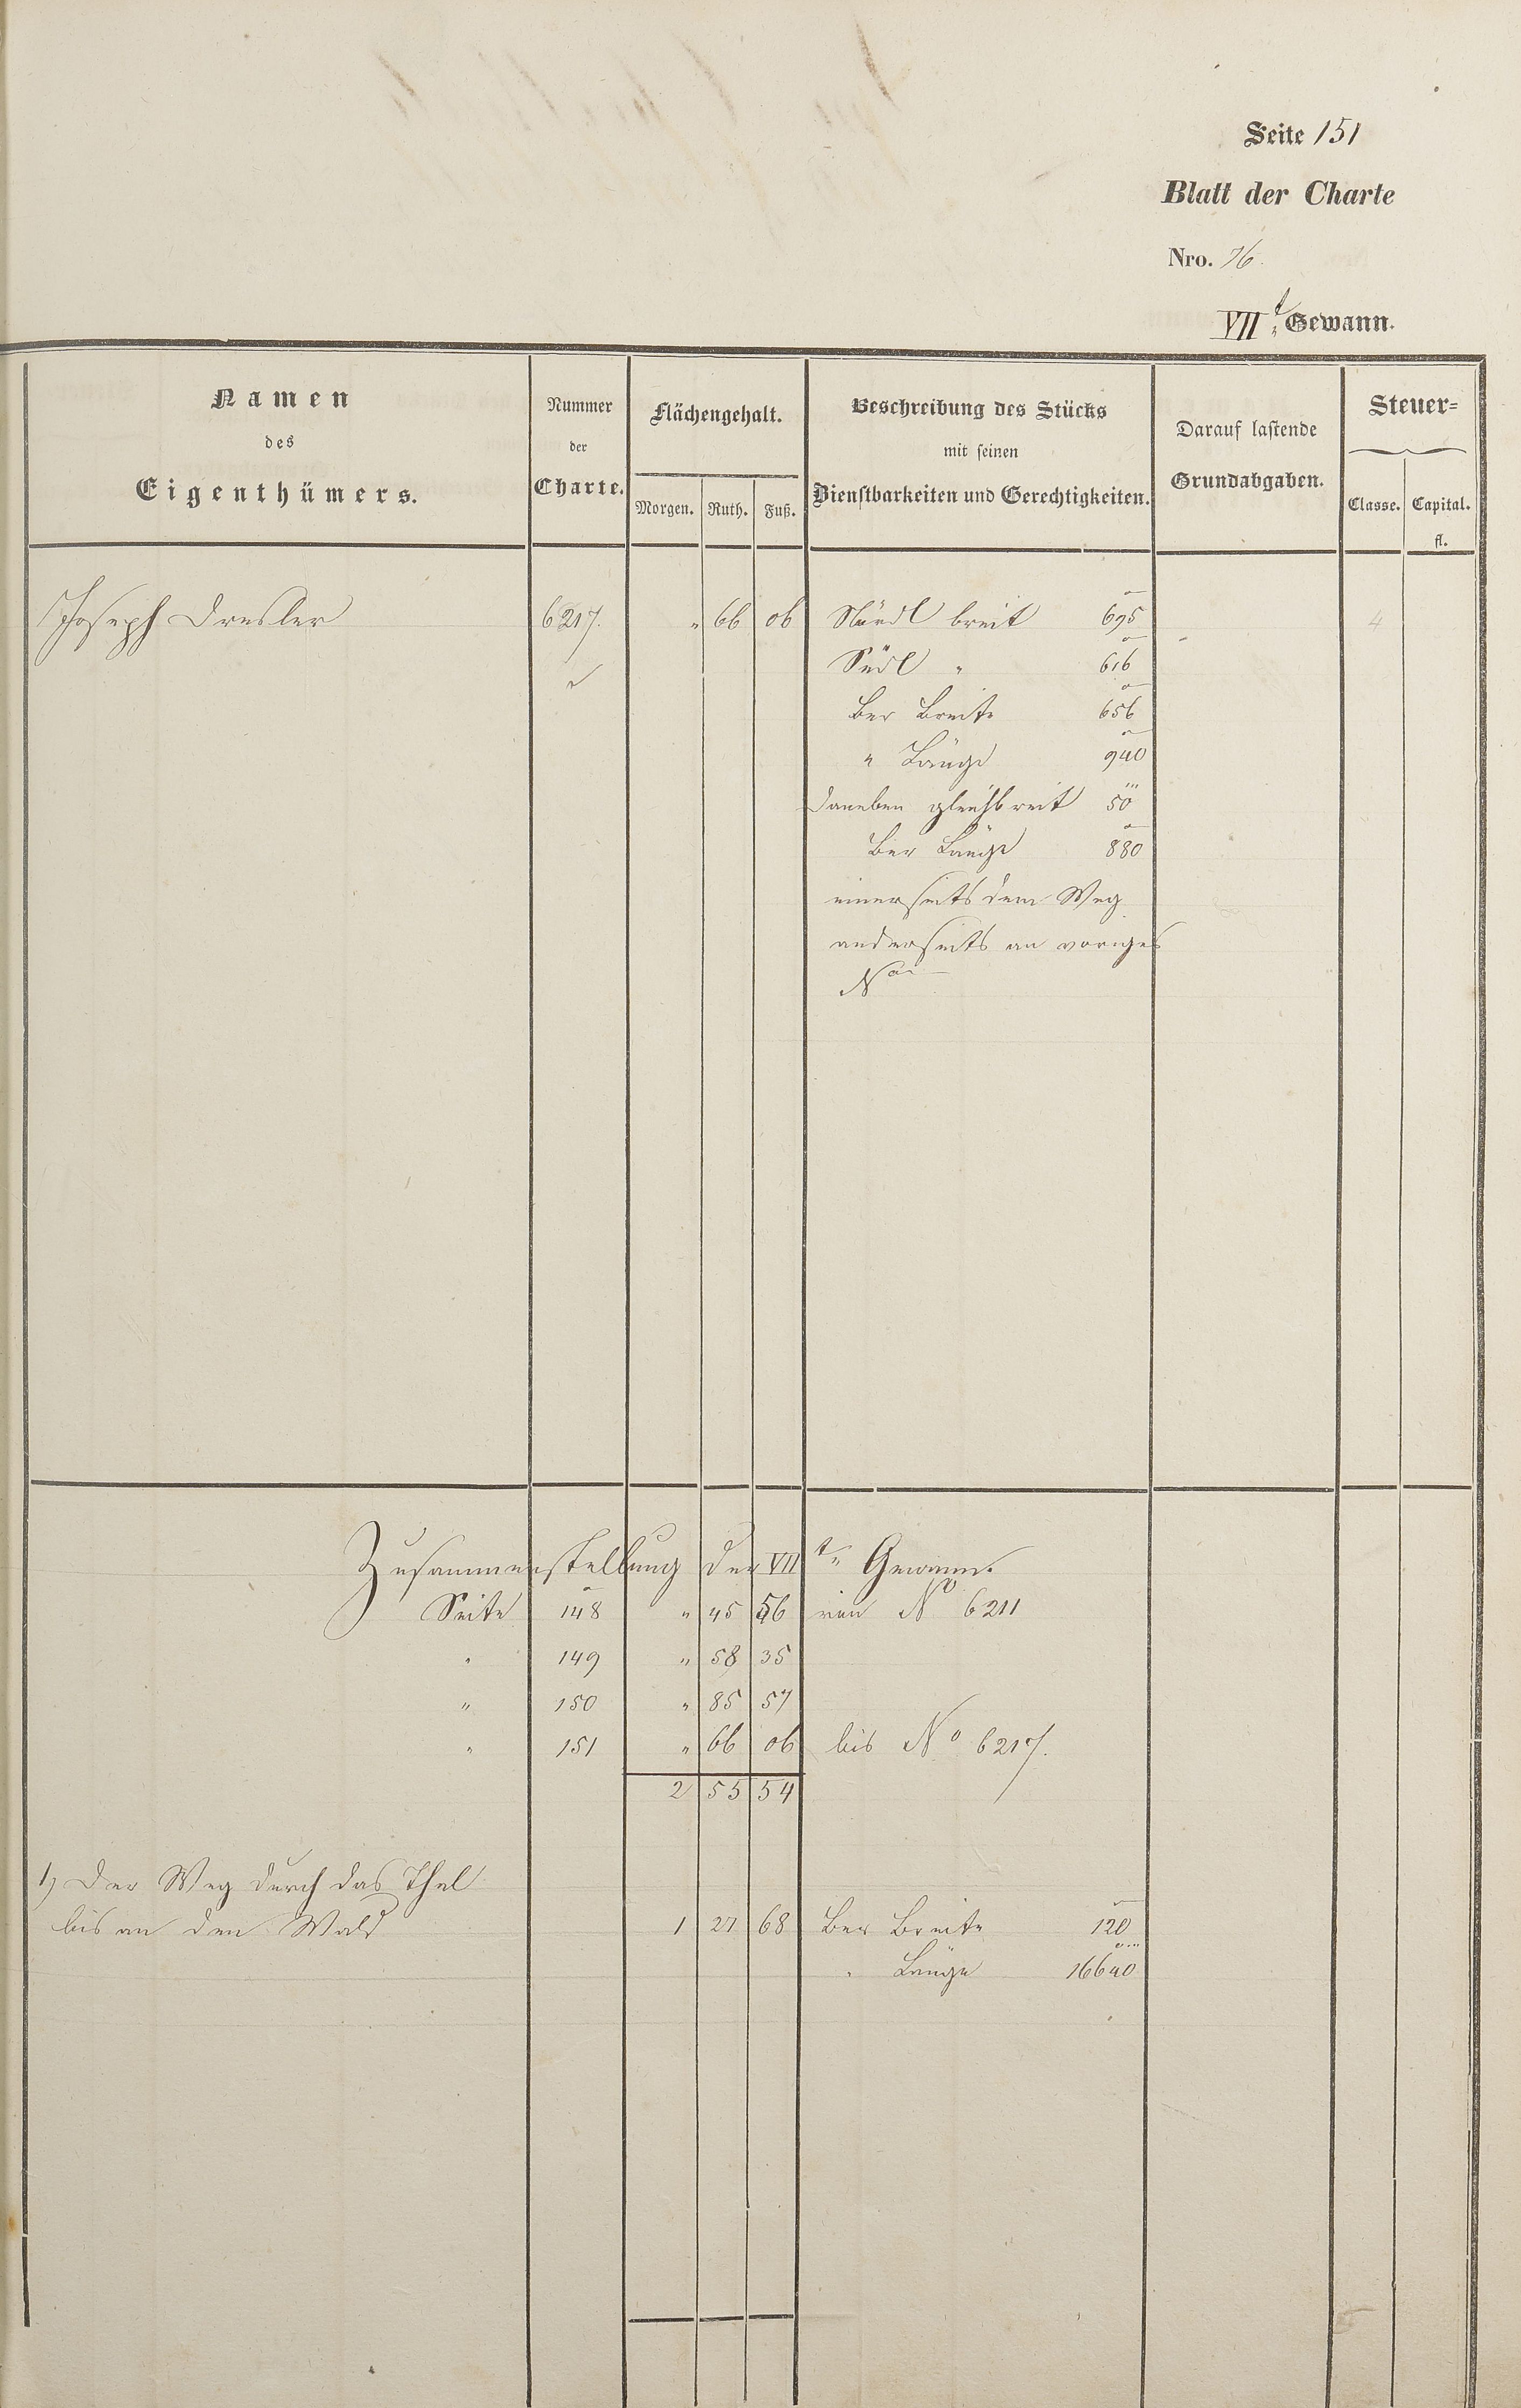 Seite 151
Blatt der Charte
Nro. 76.
VII t. Gewann.
Namen
des
Eigenthümers.
Nummer
der
Charte.
Flächengehalt.
Morgen. Ruth. Fuß.
Beschreibung des Stücks
mit seinen
Dienstbarkeiten und Gerechtigkeiten.
Darauf lastende
Grundabgaben.
Steuer-
Classe. Capital.
fl.
Joseph Dresler 6217. " 66 06 Nördl breit 695 4
Südl " 616
Ber Breite 656
" Länge 940
daneben gleichbreit 50
Ber Länge 880
einerseits dem Weg
anderseits an voriges
No
Zusammenstellung der VII t. Gewann.
Seite 148 " 45 56 von No 6211
" 149 " 58 35
" 150 " 85 57
" 151 " 66 06 bis No 6217.
2 55 54
1) Der Weg durch das Thal
bis an den Wald 1 27 68 Ber Breite 120
" Länge 16640